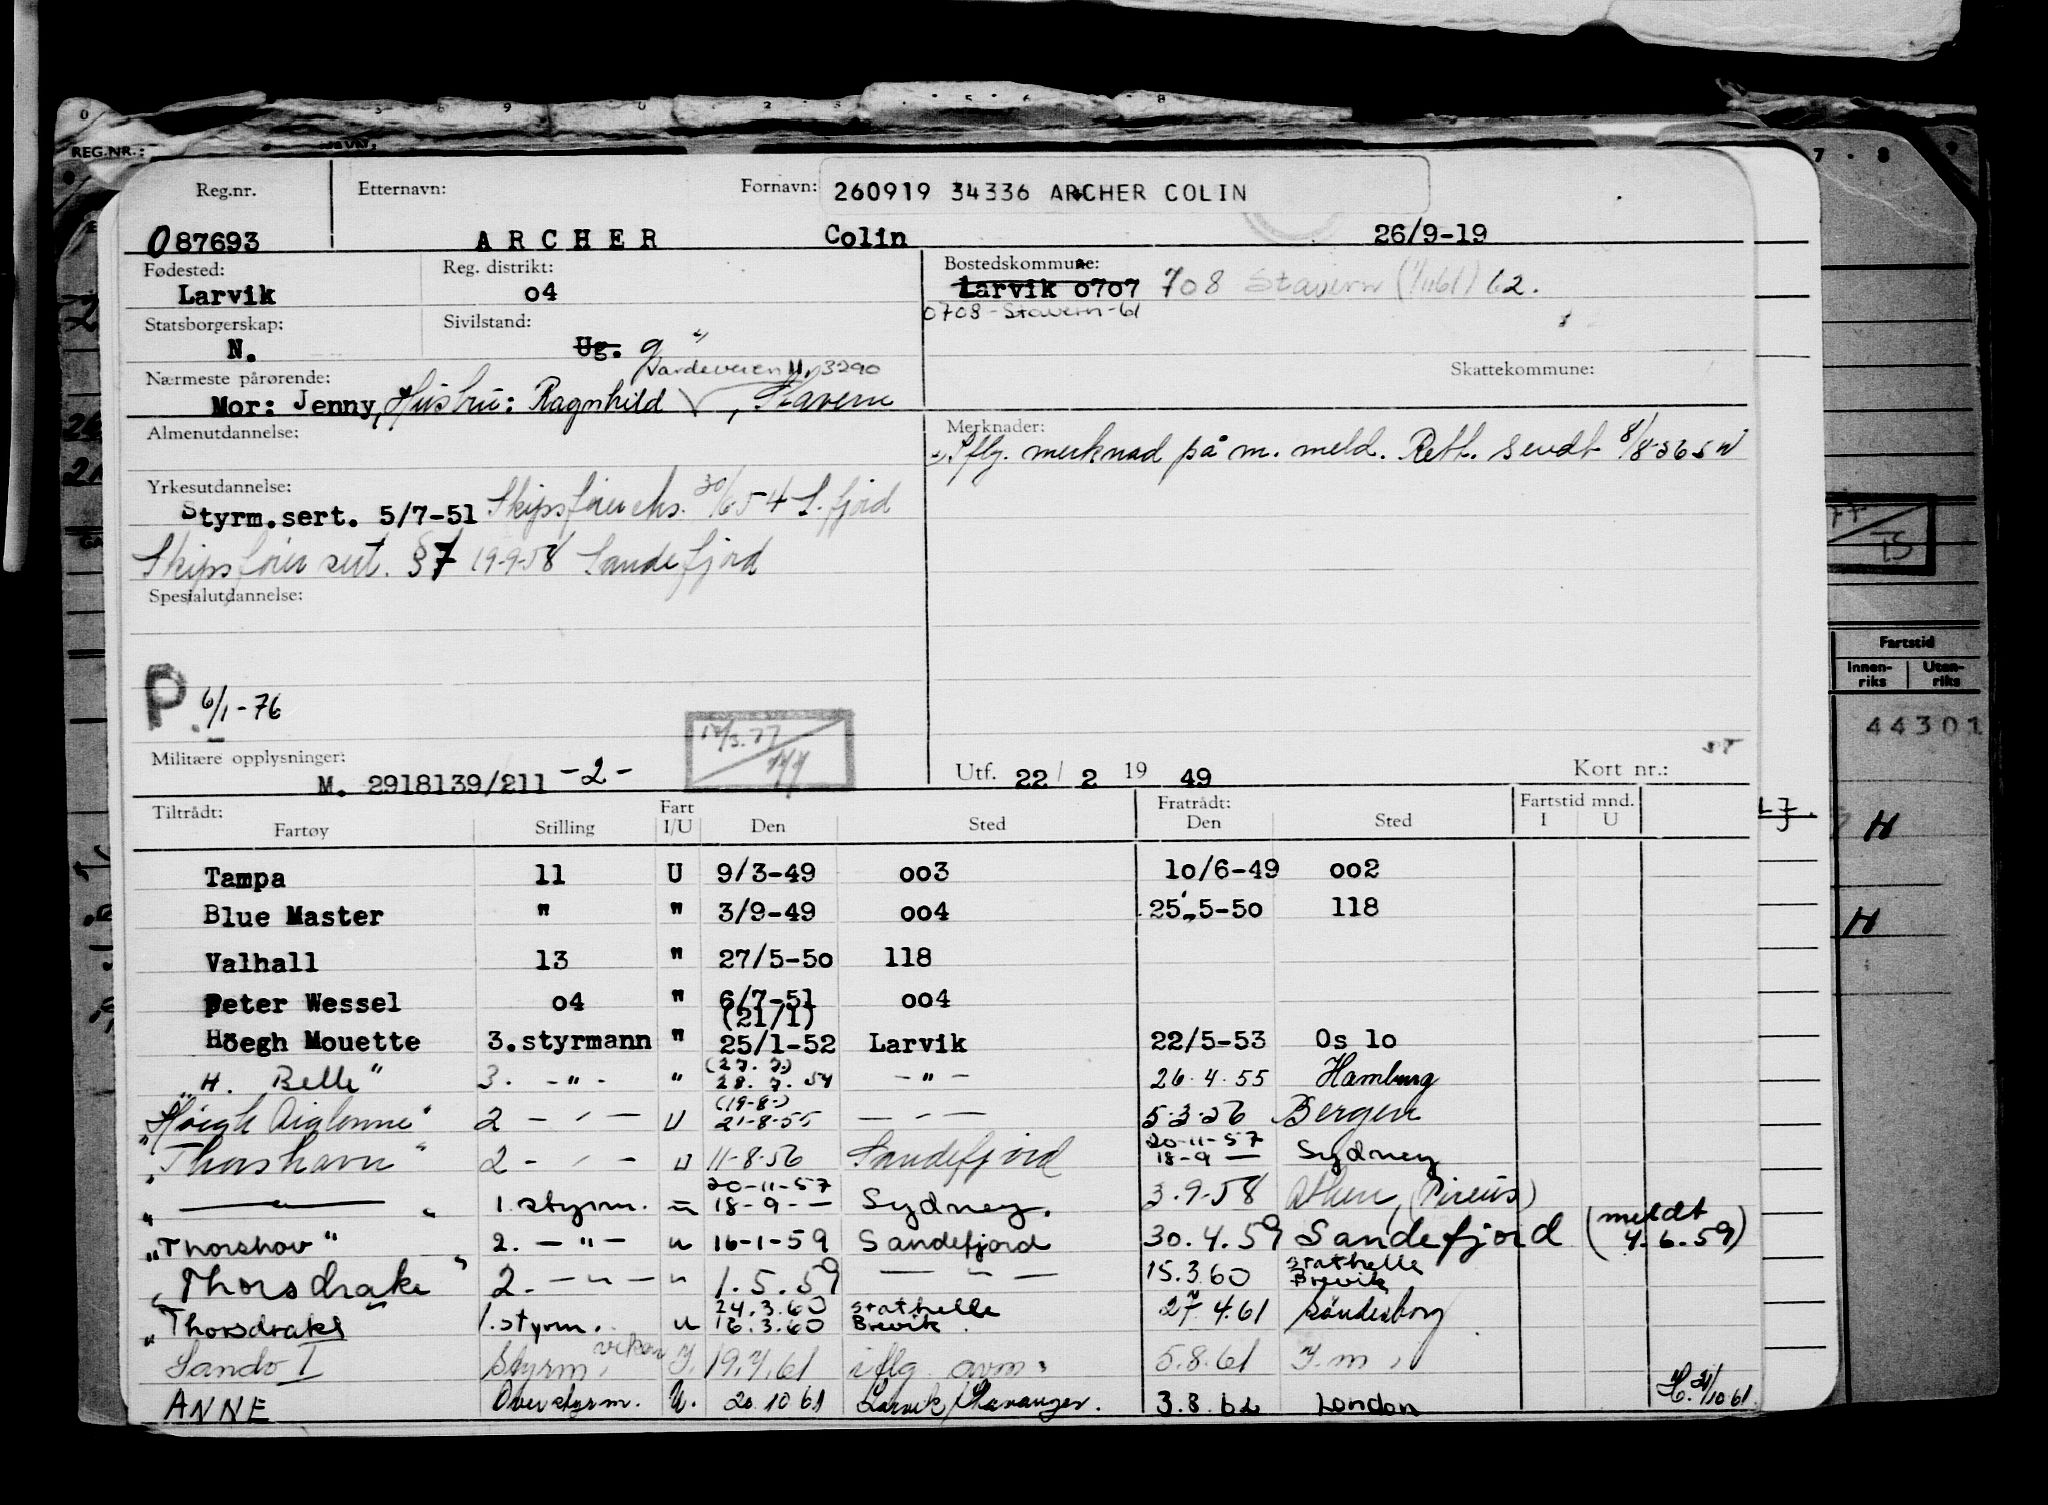 REG.NR.:
Reg.nr. Etternavn: Fornavn: 260919 34336 ARCHER COLIN
087693 ARCHER Colin 26/9-19
Fødested: Reg. distrikt: Bostedskommune:
Larvik 04 Larvik 0707 708 Stavern (1/1161) 62.
0708-Stavern-61
Statsborgerskap: Sivilstand:
N. Ug. g
Vardeveien 11, 3290
Nærmeste pårørende: Skattekommune:
Mor: Jenny, Hustru: Ragnhild , Stavern
Almenutdannelse: Merknader:
Iflg. merknad på m. meld. Rett. sendt 8/8-56
Yrkesutdannelse:
Styrm.sert. 5/7-51 Skipsførereks. 30/6 54 S.fjord
Skipsfører sert. §7 19-9-58 Sandefjord
Spesialutdannelse:
P. 6/1-76
Militære opplysninger:
M. 2918139/211 -2-
Utf. 22/2 1949 Kort nr.:
Tiltrådt: Fart Fratrådt: Fartstid mnd.
Fartøy Stilling I/U Den Sted Den Sted I U
Tampa 11 U 9/3-49 003 10/6-49 002
Blue Master " " 3/9-49 004 25.5-50 118
Valhall 13 " 27/5-50 118
Peter Wessel 04 " 6/7-51 004
(21/1)
Höegh Mouette 3.styrmann " 25/1-52 Larvik 22/5-53 Oslo
(27.7.)
"H. Belle" 3. -"- " 28.7.54 -"- 26.4.55 Hamburg
(19-8-)
"Høegh Aiglonne" 2 -"- U 21-8-55 -"- 5.3.56 Bergen
20-11-57
"Thorshavn" 2 -"- U 11-8-56 Sandefjord 18-9- Sydney
20-11-57
" -"- " 1.styrm. " 18-9- Sydney. 3.9.58 Athen, (Pireus)
"Thorshov" 2. -"- u 16-1-59 Sandefjord 30.4.59 Sandefjord (meldt 4.6.59)
"Thorsdrake" 2. -"- " 1.5.59 -"- 15.3.60 Stathelle Brevik
24.3.60 Stathelle
"Thorsdrake 1.styrm. u 16.3.60 Brevik. 27.4.61 Sönderborg
Sando I styrm. vikar I. 19.7.61 iflg avm. 5.8.61 I.m.
ANNE Overstyrm. U. 20.10 61 Larvik/Stavanger. 3.8.62 London H. 31/10 61.
Fartstid
Innen-riks Uten-riks
44301
H
H